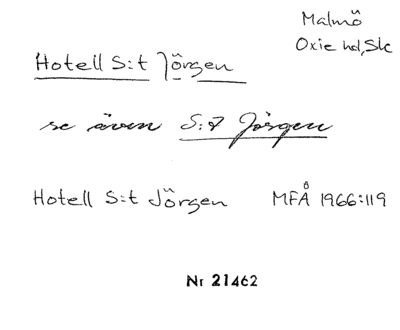 Malmö
Oxie hd, Sk
Hotell S:t Jörgen
se även S:t Jörgen
Hotell S:t Jörgen MFÅ 1966:119
Nr 21462